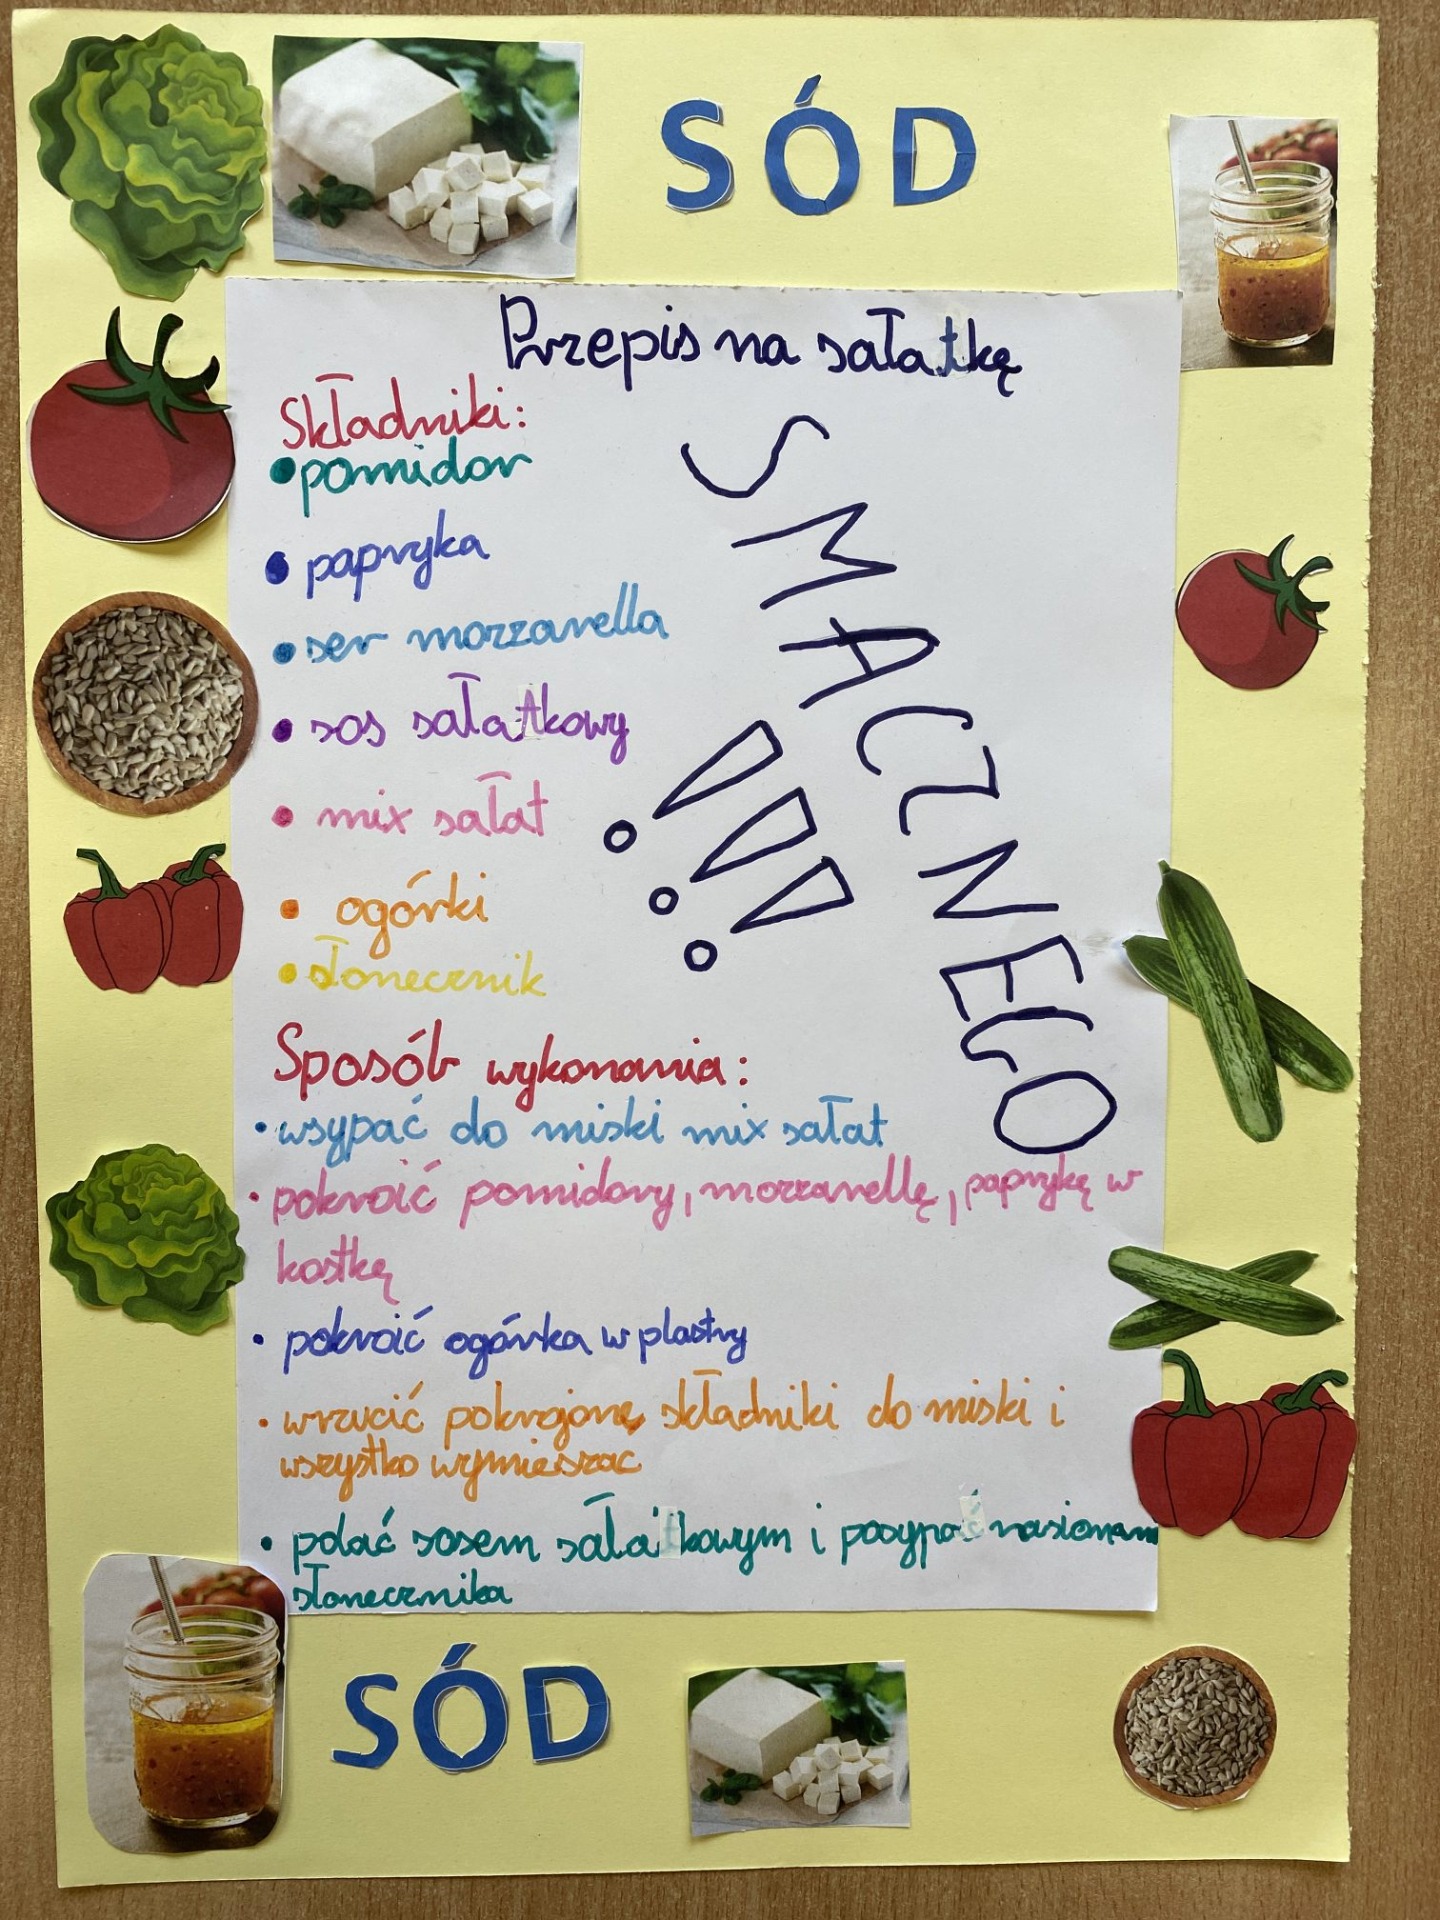 SÓD
Przepis na sałatkę
Składniki:
• pomidor
• papryka
• ser mozzarella
• sos sałatkowy
• mix sałat
• ogórki
• słonecznik
SMACZNEGO
!!!
Sposób wykonania:
• wsypać do miski mix sałat
• pokroić pomidory, mozzarellę, paprykę w
kostkę
• pokroić ogórka w plastry
• wrzucić pokrojone składniki do miski i
wszystko wymieszac
• polać sosem sałatkowym i posypać nasionami
słonecznika
SÓD